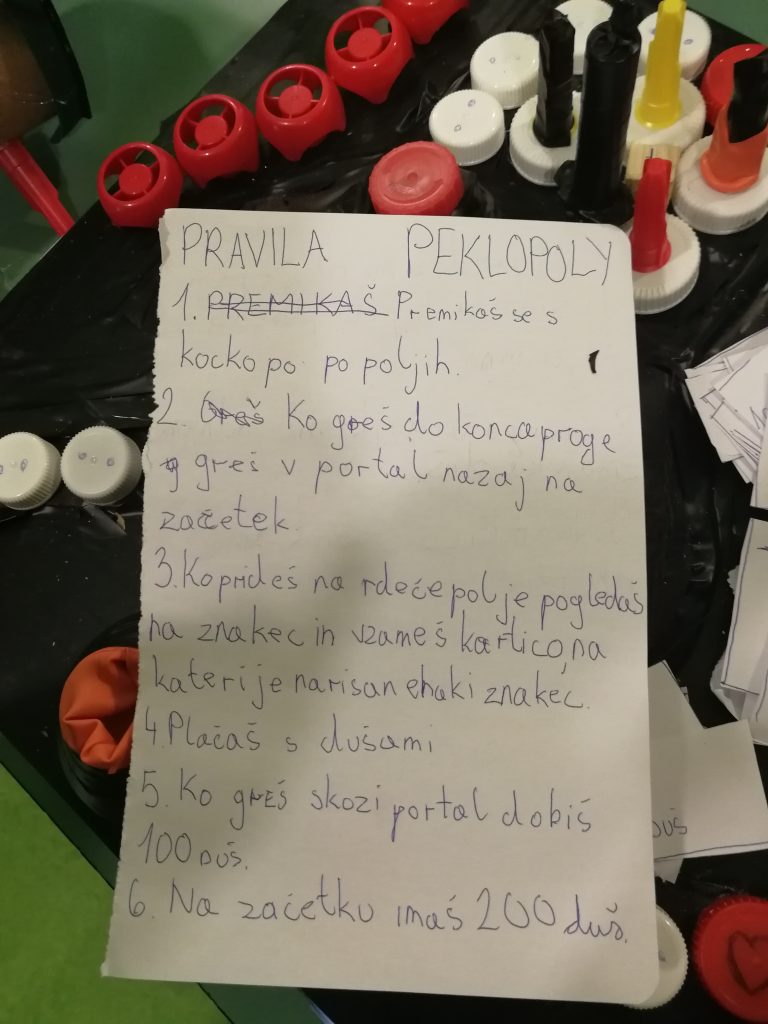 PRAVILA PEKLOPOLY
1. PREMIKAŠ Premikaš se s
kocko po po poljih.
2. Greš Ko greš do konca proge
g greš v portal nazaj na
začetek.
3. Ko prideš na rdeče polje pogledaš
na znakec in vzameš kartico, na
kateri je narisan enaki znakec.
4. Plačaš s dušami
5. Ko greš skozi portal dobiš
100 DUŠ.
6. Na začetku imaš 200 duš.
DUŠ